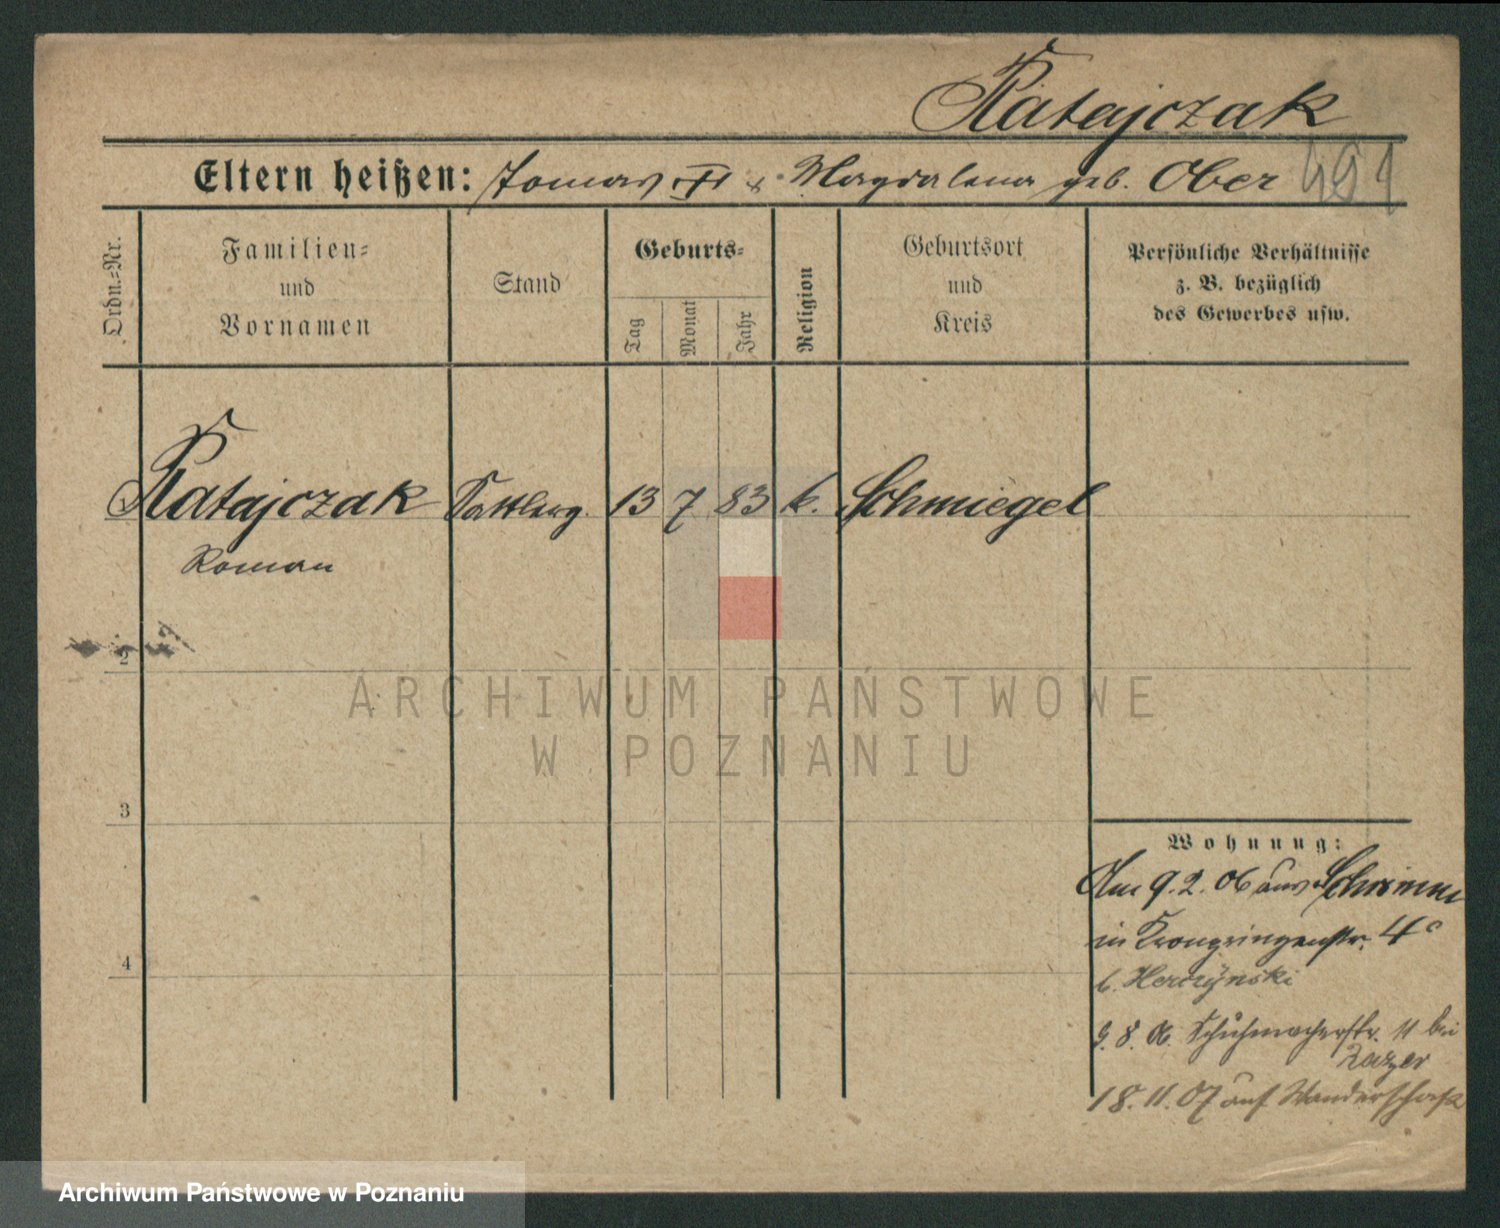 Ratajczak
Eltern heißen: Tomas & Magdalena geb. Ober
Ordn.-Nr.
Familien-
und
Vornamen
Stand
Geburts-
Tag
Monat
Jahr
Religion
Geburtsort
und
Kreis
Persönliche Verhältnisse
z. B. bezüglich
des Gewerbes usw.
Ratajczak 13 7 83 k. Schmiegel
Roman
2
ARCHIWUM PAŃSTWOWE
W POZNANIU
3
4
Wohnung:
Am 9.2.06 aus Schrimm
in Kronprinzenstr. 4c
b.
9.8.06. Schuhmacherstr. 11 bei
18.11.07 auf Wanderschaft
Archiwum Państwowe w Poznaniu